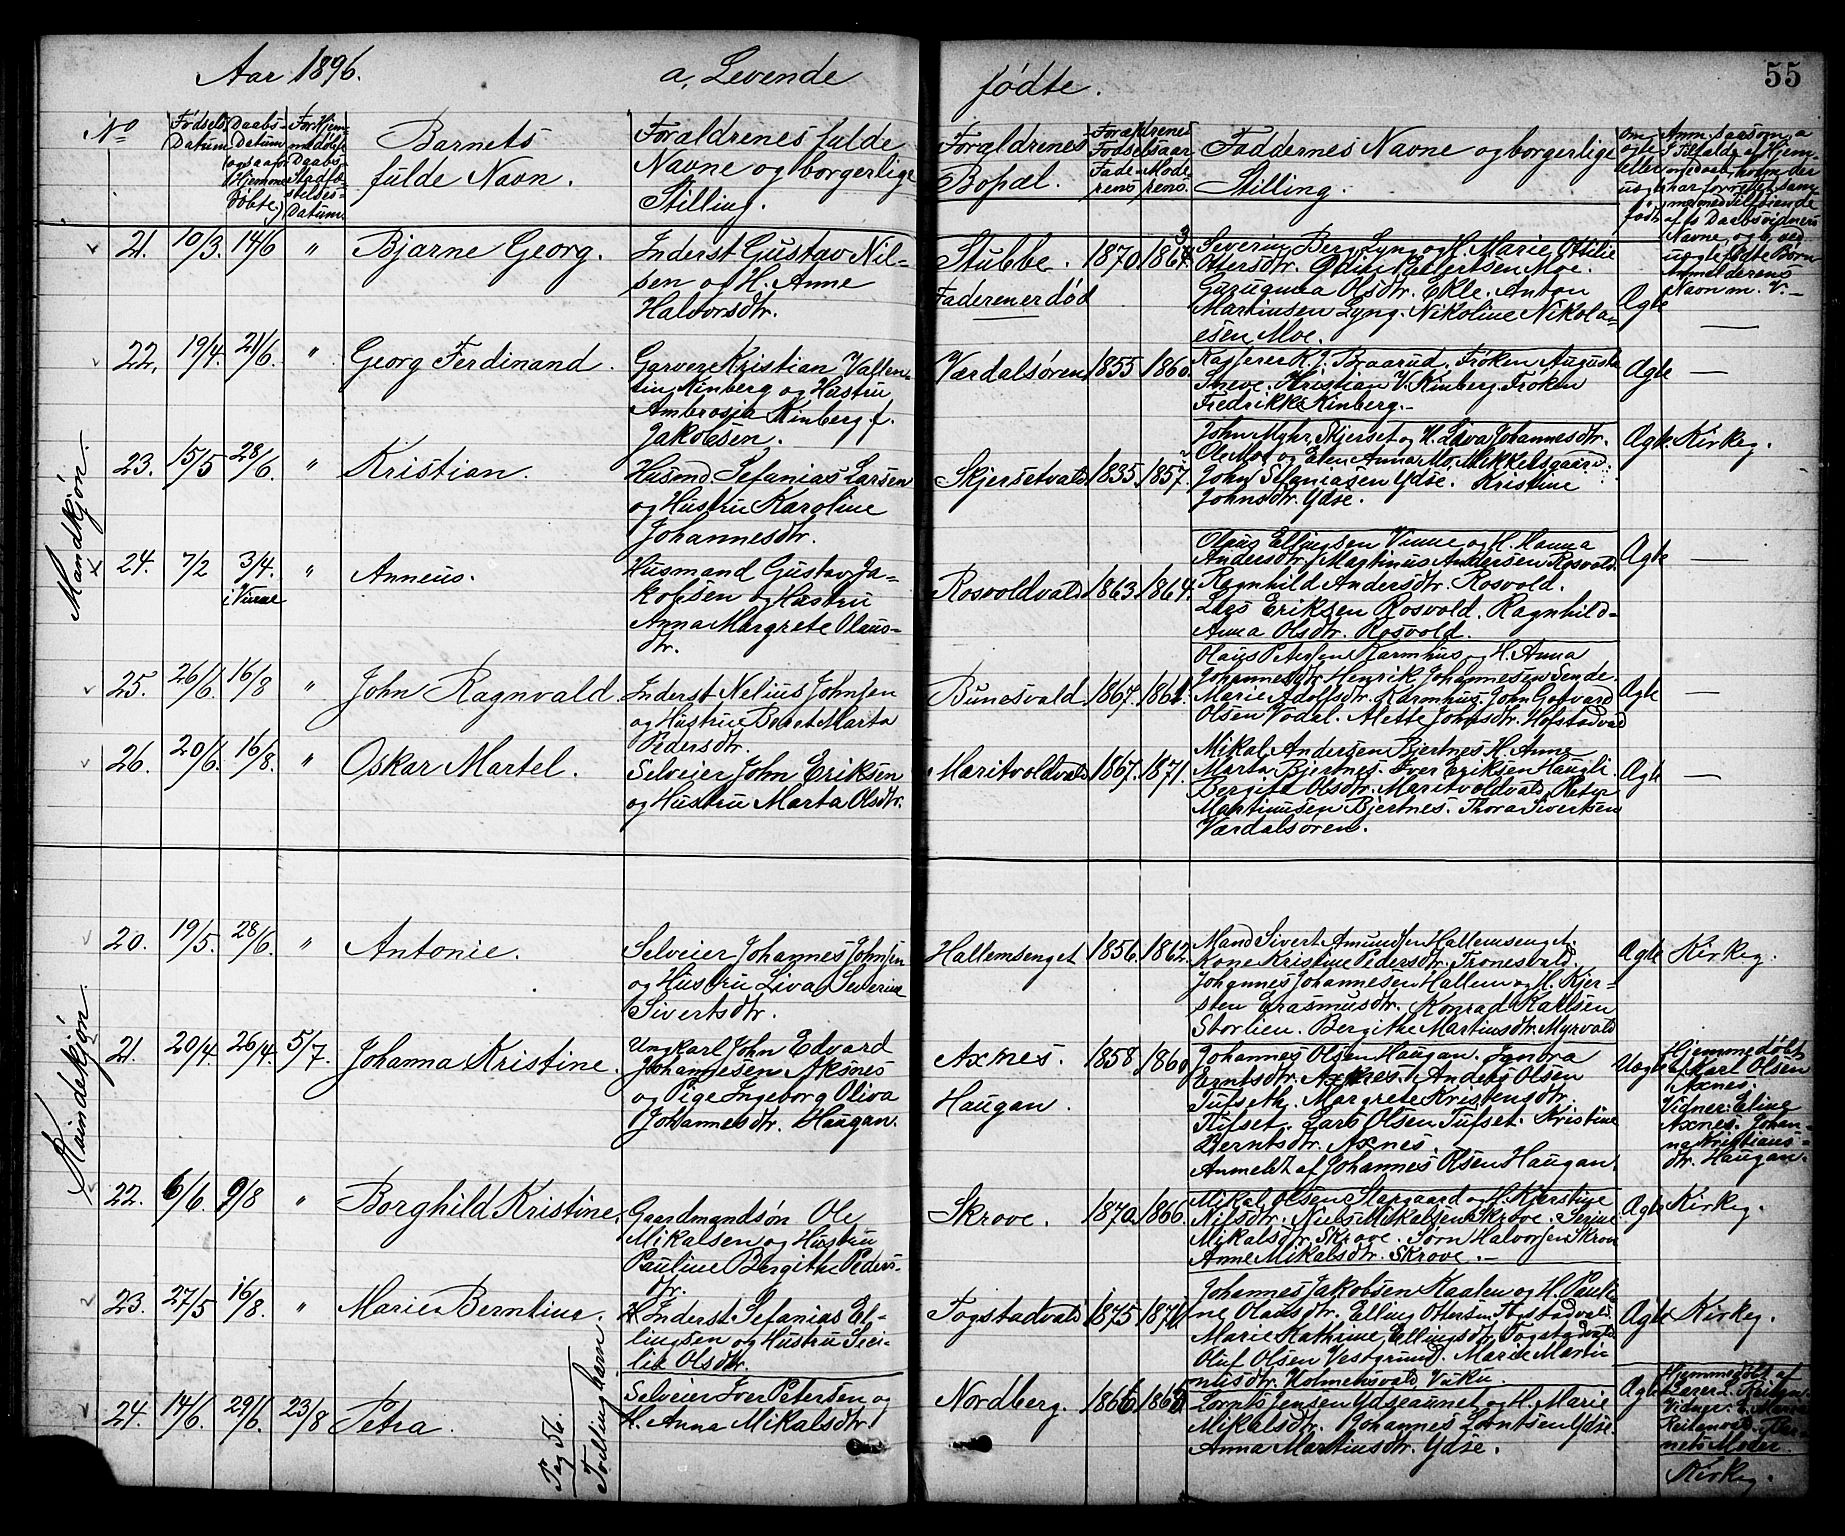 Aar 1896. a, Levende fødte. 55
No
Fødsels
Datum
Daabs-
Datum
(ogsaa for
Hjemme
døbte.)
For Hjem-
medøbte
Daabs-
Stadfæ-
stelses-
Datum
Barnets
fulde Navn.
Forældrenes fulde
Navne og borgerlige
Stilling.
Forældrenes
Bopæl.
Forældrenes
Fødselsaar
Fade-
rens
Mode-
rens.
Faddernes Navne og borgerlige
Stilling.
Om
ægte
eller
uægte
født
Anm. saasom a
i Tilfælde af Hjem-
medaab, hvem der
har forrettet sam-
me med Tilføiende
af to Daabsvidners
Navne, og b, ved
uægte fødte Børn
Anmelderens
Navn m. V.
Mandkjøn.
21. 10/3. 14/6 " Bjarne Georg.
Inderst Gustav Nil-
sen og H. Anne
Halvorsdtr.
Stubbe. 1870 1864
Faderen er død
Severin Berg Lyng og H. Marie Ottilie
Ottersdtr. Edvin Ellertsen Moe.
Olsdtr. Ekle. Anton
Martinsen Lyng. Nikoline Nikola-
esen Moe.
Ægte —
22. 19/4. 21/6. " Georg Ferdinand.
Garver Kristian Vallen-
tin Kinberg og Hustru
Ambrosia Kinberg f.
Jakobsen.
Værdalsøren 1855 1860
Kasserer K. J. Braarud. Frøken Augusta
Sneve. Kristian V. Kinberg. Frøken
Fredrikke Kinberg.
Ægte —
23. 15/5 28/6. " Kristian.
Husmd. Sefanias Larsen
og Hustru Karoline
Johannesdtr.
Skjersetvald 1835. 1857.
John Myhr, Skjerset og H. Liva Johannesdtr.
Ole Moe og Elen Anna Mo, Mikkelsgaard.
John Sefaniasen Ydse. Kristine
Johnsdtr. Ydse.
Ægte Kirkeg.
24. 7/2 3/4. " Anneus.
i Vinne
Husmand Gustav Ja-
kobsen og Hustru
Anna Margrete Olaus-
dtr.
Rosvoldvald 1863. 1864.
Olaus Ellingsen Vinne og H. Hanna
Andersdtr. Magtinus Andersen Rosvold.
Ragnhild Andersdtr. Rosvold.
Lars Eriksen Rosvold. Ragnhild-
Anna Olsdtr. Rosvold.
Ægte —
25. 26/6. 16/8 " John Ragnvald.
Inderst Nelius Johnsen
og Hustru Beret Marta
Pedersdtr.
Bunesvald 1867. 1861.
Olaus Petersen Karmhus og H. Anna
Johannesdtr. Henrik Johannesen Sende.
Marie Adolfsdtr. Karmhus. John Gotvard
Olsen Vodal. Alette Johnsdtr. Hofstadvad
Ægte —
26. 20/6. 16/8. " Oskar Martel.
Selveier John Eriksen
og Hustru Marta Olsdtr.
Maritvoldvald 1867. 1871.
Mikal Andersen Bjertnes H. Anne
Marta Bjertnes. Iver Eriksen Haugli
Bergitte Olsdtr. Maritvoldvald. Peter
Martinusen Bjertnes. Thora Sivertsen
Værdalsøren.
Ægte —
Kvindekjøn.
20. 19/5. 28/6. " Antonie.
Selveier Johannes Johnsen
og Hustru Liva Severine
Sivertsdtr.
Hallemsenget 1856. 1862.
Mand Sivert Amundsen Hallemsenget.
Kone Kristine Pedersdtr. Tronesvald.
Johannes Johannesen Hallem og H. Kjer-
sten Erasmusdtr. Konrad Karlsen
Storlien. Bergithe Martinsdtr. Myrvald
Ægte Kirkeg.
21. 20/4. 26/4. 5/7. Johanna Kristine.
Ungkarl John Edvard
Johannesen Aksnes
og Pige Ingeborg Oliva
Johannesdtr. Haugan.
Axnes. 1858 1860
Haugan.
Johannes Olsen Haugan. Indra
Berntsdtr. Axnes. Anders Olsen
Tufseth. Margrete Kristensdtr.
Tufset. Lars Olsen Tufset. Kristine
Berntsdtr. Axnes.
Anmeldt af Johannes Olsen Haugan.
Uægte Hjemmedøbt
af Karl Olsen
Axnes.
Vidner: Eline
Axnes. Johan-
na Kristians-
dtr. Haugan.
22. 6/6. 9/8 " Borghild Kristine.
Gaardmandsøn Ole
Mikalsen og Hustru
Pauline Bergithe Peders-
dtr.
Skrove. 1870. 1866.
Mikal Olsen Slapgaard og H. Kjerstine
Nilsdtr. Niels Mikalsen Skrove. Serine
Mikalsdtr. Skrove. Sørn Halvorsen Skrove
Anne Mikalsdtr. Skrove.
Ægte Kirkeg.
23. 27/5 16/8. " Marie Berntine.
Inderst Sefanias El-
lingsen og Hustru Seri-
lie Olsdtr.
Fogstadvald 1875 1871
Johannes Jakobsen Kaalen og H. Pauli-
ne Olausdtr. Elling Ottersen Fogstadvald
Marie Kathrine Ellingsdtr. Fogstadvald
Oluf Olsen Vestgrund. Marie Marti-
nusdtr. Holmensvald, Vuku.
Ægte Kirkeg.
24. 14/6. 29/6. 23/8 Petra.
Selveier Iver Petersen og
H. Anna Mikalsdtr.
Nordberg. 1866. 1863
Lornts Jensen Ydseaunet og H. Marie
Mikalsdtr. Johannes Lorntsen Ydse.
Anna Martinsdtr. Ydse.
Ægte Hjemmedøbt af
Lærer L. Reitan.
Vidner: Marie
og Bar-
nets Moder.
Kirkeg.
Pag 56.
Tvillingbarn.